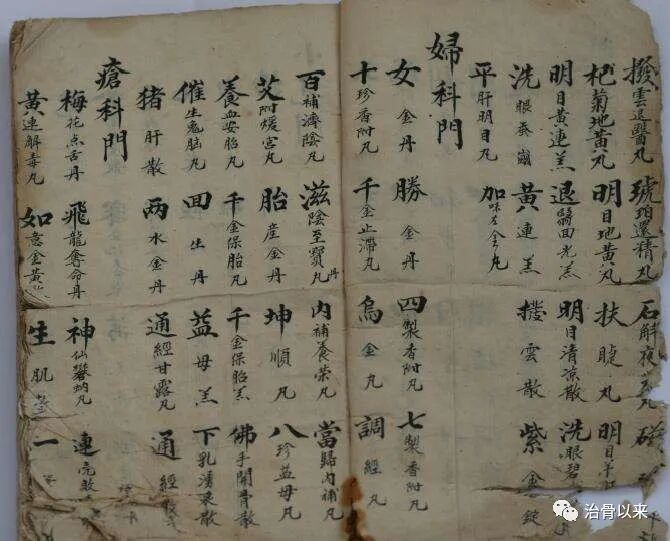 撥雲退翳丸 琥珀還精丸 石斛夜光丸
杞菊地黃丸 明目地黃丸 扶睫丸 明目
明目黃連羔 退翳面光羔 明目清凉散 洗眼碧
洗眼蚕 黃連羔 撥雲散 紫金錠
平肝明目丸 加味左金丸
婦科門
女金丹 勝金丹 四製香附丸 七製香附丸
十珍香附丸 千金止滯丸 烏金丸 調經丸
百補濟陰丸 滋陰至寶丸丹 內補養荣丸 當歸內補丸
艾附煖宮丸 胎産金丹 坤順丸 八珍益母丸
養血安胎丸 千金保胎丸 千金保胎羔 佛手開骨散
催生兔脑丸 回生丹 益母羔 下乳湧泉散
猪肝散 两水金丹 通經甘露丸 通經
瘡科門
梅花点舌丹 飛龍奪命丹 神仙 丸 連
黃連解毒丸 如意金黃 生肌 一
治骨以来